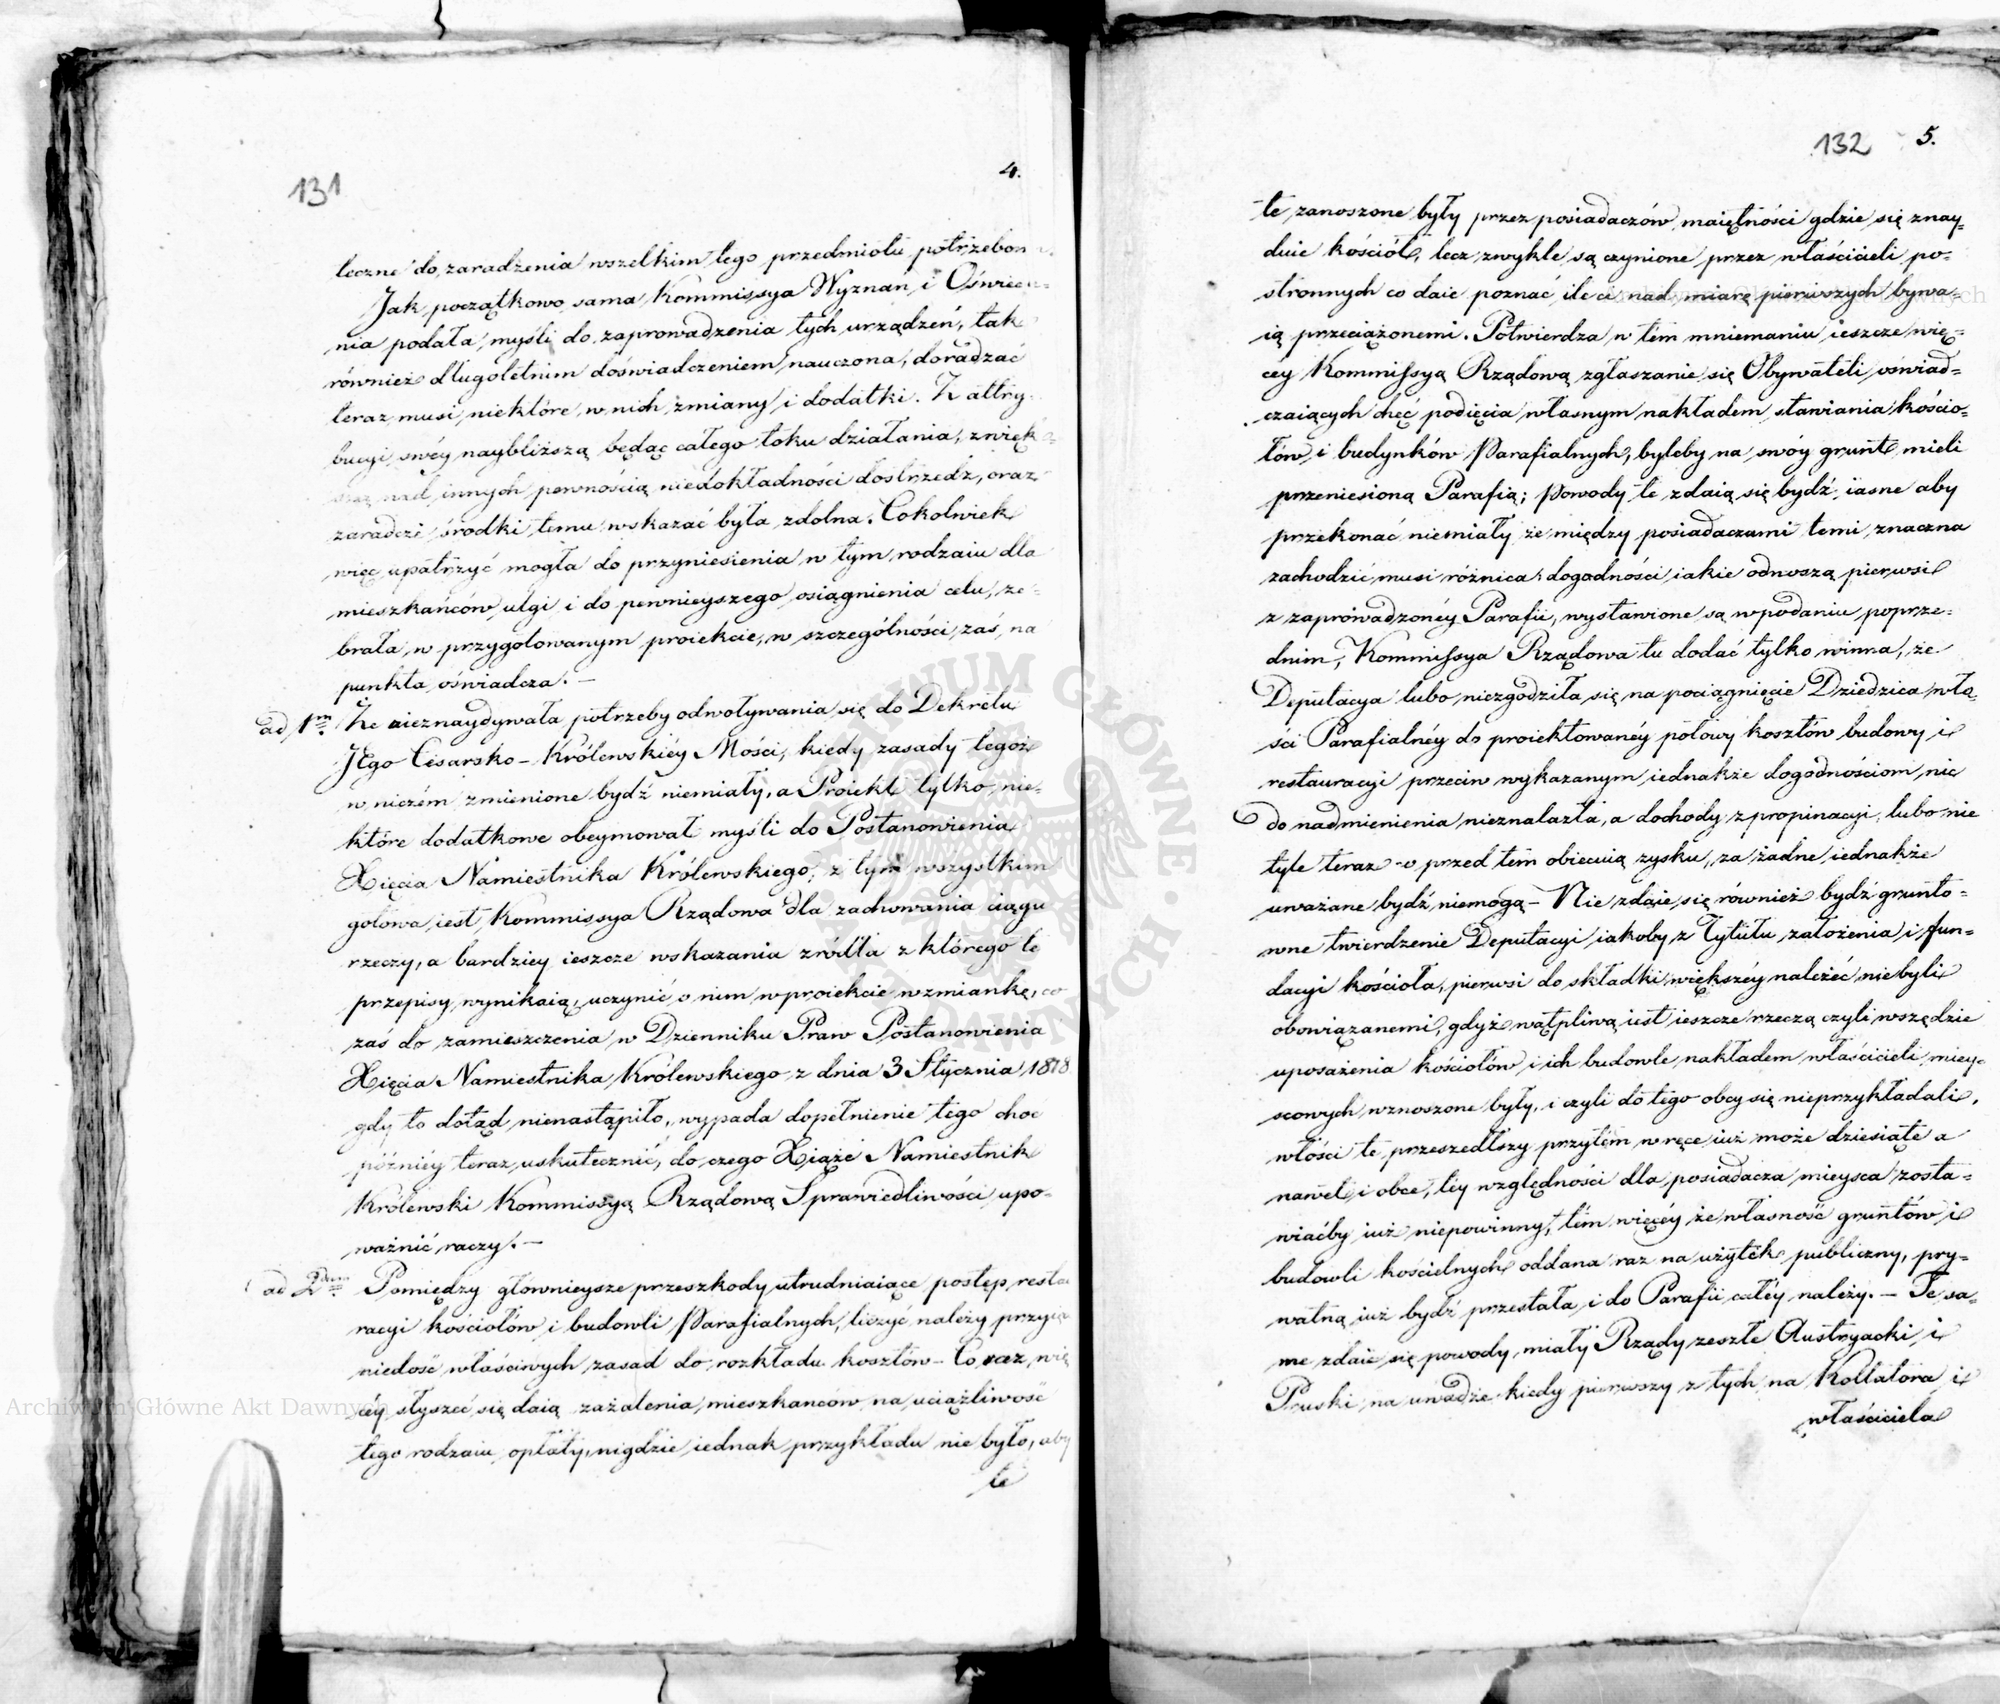 131
4.
teczne do zaradzenia wszelkim tego przedmiotu potrzebom
Jak początkowo sama Kommissya Wyznan i Oświece-
nia podała myśli do zaprowadzenia tych urządzeń, tak
również długoletnim doświadczeniem nauczona, doradzać
teraz musi niektóre w nich zmiany i dodatki. Z attry-
bucyi swéy naybliższą będąc całego toku działania, z więk-
szą nad innych pewnością niedokładności dostrzedz, oraz
zaradcze środki temu wskazać była zdolna. Cokolwiek
więc upatrzyć mogła do przyniesienia w tym rodzaiu dla
mieszkańców ulgi i do pewnieyszego osiągnienia celu, ze-
brała w przygotowanym proiekcie, w szczególności zaś na
punkta oświadcza. —
ad 1m Że nieznaydywała potrzeby odwoływania się do Dekretu
JEgo Cesarsko-Królewskiéy Mości, kiedy zasady tegoż
w niczém zmienione bydź niemiały, a Proiekt tylko nie-
które dodatkowe obeymował myśli do Postanowienia
Xięcia Namiestnika Królewskiego, z tym wszystkim
gotowa iest Kommissya Rządowa dla zachowania ciągu
rzeczy, a bardziey ieszcze wskazania zródła z którego te
przepisy wynikaią, uczynić o nim w proiekcie wzmiankę, co
zaś do zamieszczenia w Dzienniku Praw Postanowienia
Xięcia Namiestnika Królewskiego z dnia 3 Stycznia 1818
gdy to dotąd nienastąpiło, wypada dopełnienie tego choć
późniéy teraz uskutecznić, do czego Xiąże Namiestnik
Królewski Kommissyą Rządową Sprawiedliwości upo-
ważnić raczy. —
ad 2dum Pomiędzy głownieysze przeszkody utrudniaiące postęp resta
racyi kościołów i budowli Parafialnych, liczyć należy przyię
niedość właściwych zasad do rozkładu kosztów – Coraz wię
céy słyszeć się daią zażalenia mieszkanców na uciążliwość
tego rodzaiu opłaty, nigdzie iednak przykładu nie było, aby
te
132
5.
te zanoszone były przez posiadaczów maiętności gdzie się znay-
duie kościół, lecz zwykle są czynione przez właścicieli po-
stronnych co daie poznać ile ci nad miarę pierwszych bywa-
ią przeciążonemi. Potwierdza w tém mniemaniu ieszcze wię-
cey Kommissyą Rządową zgłaszanie się Obywateli oświad-
czaiących chęć podięcia własnym nakładem stawiania kościo-
łów i budynków Parafialnych, byleby na swóy grunt mieli
przeniesioną Parafią; Powody te zdaią się bydź iasne aby
przekonać niemiały że między posiadaczami temi znaczna
zachodzić musi różnica; dogodności iakie odnoszą pierwsi
z zaprowadzonéy Parafii, wystawione są w podaniu poprze-
dnim, Kommissya Rządowa tu dodać tylko winna, że
Deputacya lubo niezgodziła się na pociągnięcie Dziedzica wło
ści Parafialnéy do proiektowanéy połowy kosztów budowy i
restauracyi przeciw wykazanym iednakże dogodnościom nic
do nadmienienia nieznalazła, a dochody z propinacyi, lubo nie
tyle teraz co przed tém obiecuią zysku, za żadne iednakże
uważane bydź niemogą – Nie zdaie się również bydź grunto-
wne twierdzenie Deputacyi iakoby z Tytułu założenia i fun-
dacyi kościoła, pierwsi do składki większéy należeć niebyli
obowiązanemi, gdyż wątpliwą iest ieszcze rzeczą czyli wszędzie
uposażenia kościołów i ich budowle nakładem właścicieli miey-
scowych wznoszone były, i czyli do tego obcy się nieprzykładali,
włości te przeszedłszy przytém w ręce iuż może dziesiąte a
nawet i obce, téy względności dla posiadacza mieysca zosta-
wiaćby iuż niepowinny, tém więcéy że własność gruntów i
budowli kościelnych oddana raz na użytek publiczny, pry-
watną iuż bydź przestała i do Parafii całéy należy. — Te sa-
me zdaie się powody miały Rządy zeszłe Austryacki i
Pruski na uwadze kiedy pierwszy z tych na Kollatora i
właściciela
Archiwum Główne Akt Dawnych
ARCHIWUM GŁÓWNE AKT DAWNYCH